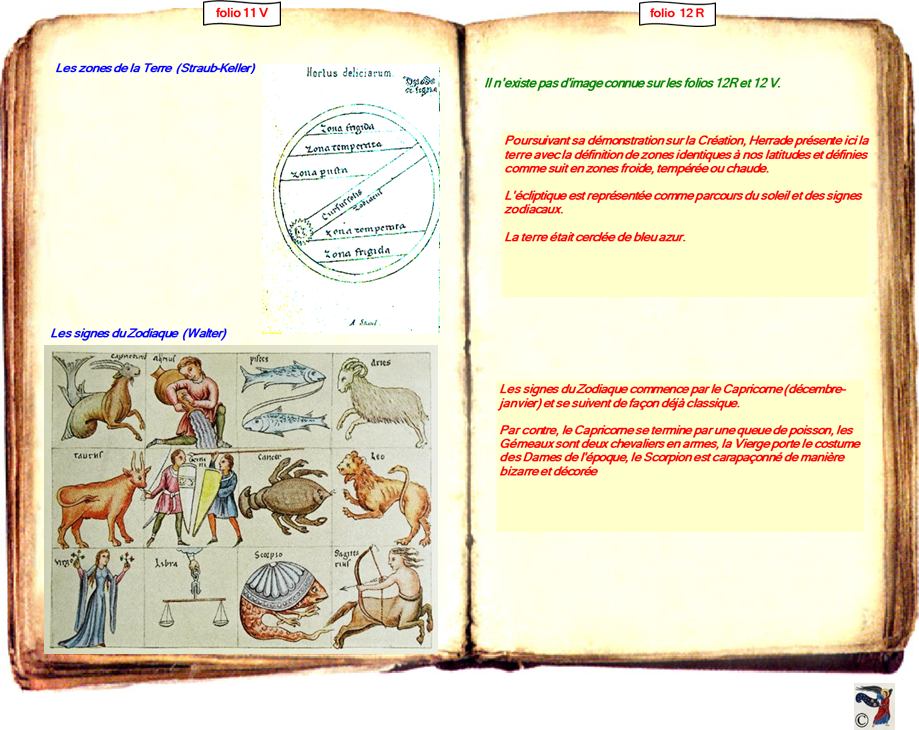 folio 11 V
Les zones de la Terre (Straub-Keller)
Hortus deliciarum.
Zona frigida
Zona temperata
Zona
Cursus solis
Zodiacus
Zona temperata
Zona frigida
Les signes du Zodiaque (Walter)
pisces
aries
taurus
Gemini
Cancer
Leo
Virgo
Libra
Scorpio
Sagitta
rius
folio 12 R
Il n'existe pas d'image connue sur les folios 12R et 12 V.
Poursuivant sa démonstration sur la Création, Herrade présente ici la
terre avec la définition de zones identiques à nos latitudes et définies
comme suit en zones froide, tempérée ou chaude.
L'écliptique est représentée comme parcours du soleil et des signes
zodiacaux.
La terre était cerclée de bleu azur.
Les signes du Zodiaque commence par le Capricorne (décembre-
janvier) et se suivent de façon déjà classique.
Par contre, le Capricorne se termine par une queue de poisson, les
Gémeaux sont deux chevaliers en armes, la Vierge porte le costume
des Dames de l'époque, le Scorpion est carapaçonné de manière
bizarre et décorée
©